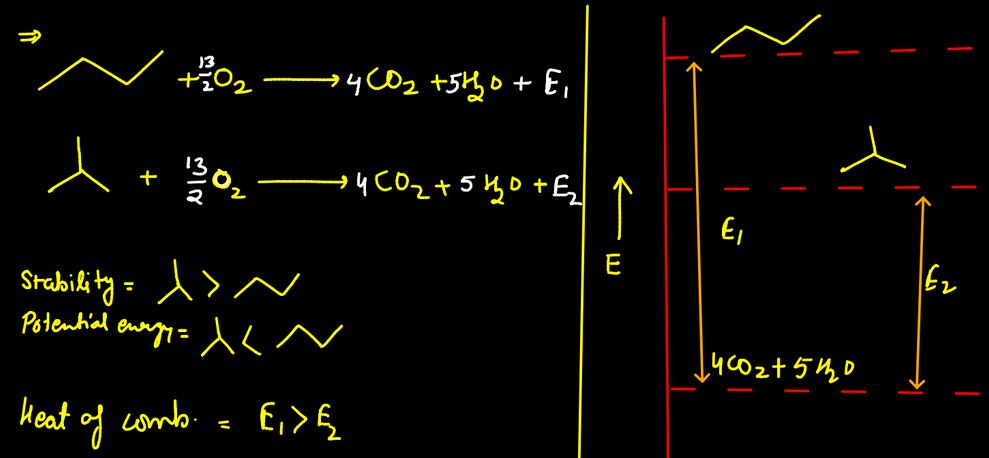 ⇒
+ 13/2 O₂ ⟶ 4CO₂ + 5H₂O + E₁
+ 13/2 O₂ ⟶ 4CO₂ + 5H₂O + E₂
Stability = >
Potential energy = <
Heat of comb. = E₁ > E₂
E
E₁
E₂
4CO₂ + 5H₂O